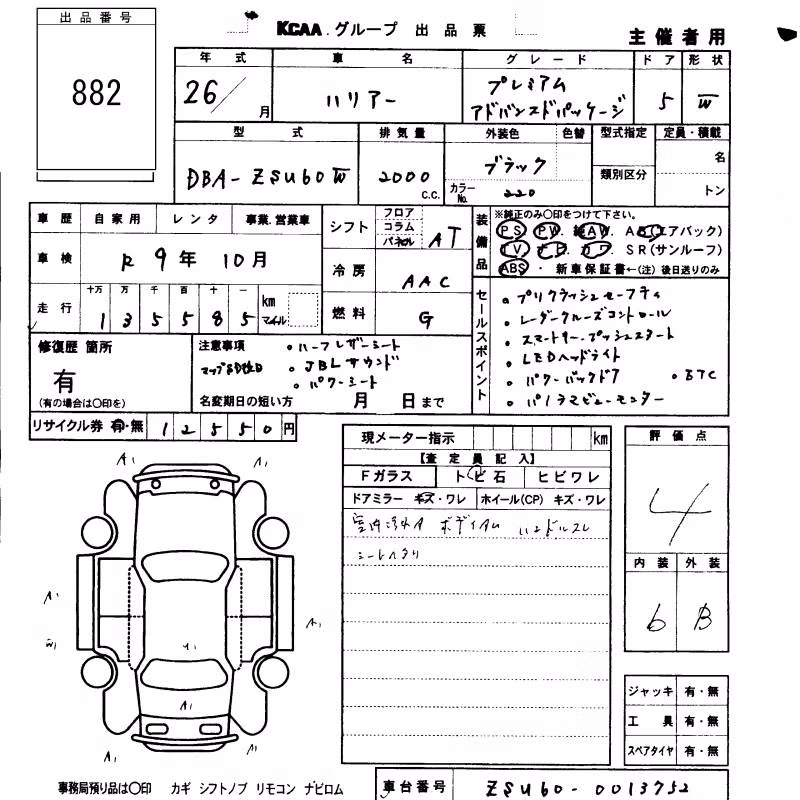 出品番号
882
KCAA.グループ 出品票
主催者用
年式 車名 グレード ドア 形状
26/ 月 ハリアー プレミアム アドバンスドパッケージ 5 W
型式 排気量 外装色 色替 型式指定 定員・積載
DBA-ZSU60W 2000 c.c. ブラック カラーNo. 220 類別区分 名 トン
車歴 自家用 レンタ 事業.営業車
車検 R9年 10月
走行 十万 万 千 百 十 一 km マイル
135585
シフト フロア コラム パネル AT
冷房 AAC
燃料 G
装備品 ※純正のみ〇印をつけて下さい。
PS PW. AW. AB(エアバック)
TV SR(サンルーフ)
ABS ・ 新車保証書←(注) 後日送りのみ
セールスポイント
・プリクラッシュセーフティ
・レーダークルーズコントロール
・スマートキー・プッシュスタート
・LEDヘッドライト
・パワーバックドア ・ETC
・パノラマビューモニター
修復歴 箇所
有
(有の場合は〇印を)
注意事項
・ハーフレザーシート
・JBLサウンド
・パワーシート
名変期日の短い方 月 日まで
リサイクル券 有・無 12550円
現メーター指示 km
【査定員記入】
Fガラス トビ石 ヒビワレ
ドアミラー キズ・ワレ ホイール(CP) キズ・ワレ
ハンドルスレ
評価点
4
内装 外装
6 B
A1 A1
A1 A1
W1 U1
A1
A1 A1
ジャッキ 有・無
工具 有・無
スペアタイヤ 有・無
事務局預り品は〇印 カギ シフトノブ リモコン ナビロム
車台番号 ZSU60-0013752